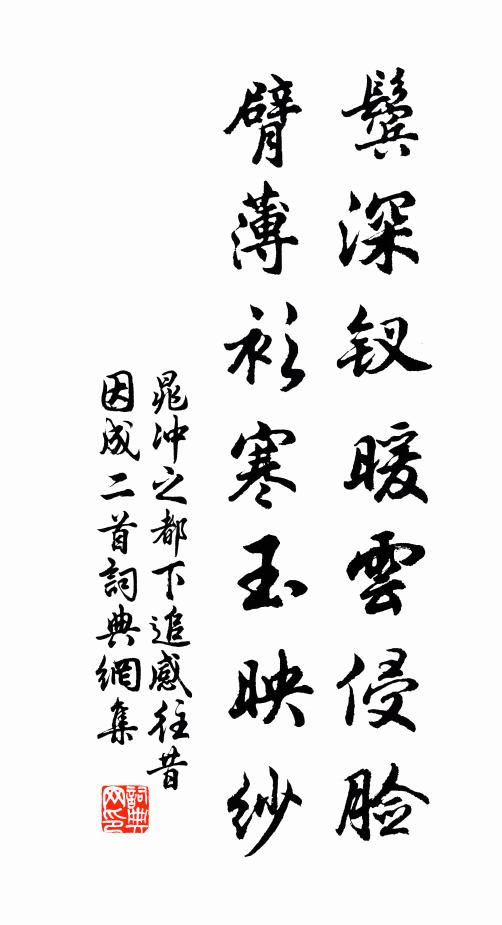 鬓深钗暖雲侵脸
臂薄衫寒玉映纱
晁冲之都下追感往昔
因成二首詞典網集
詞典网印